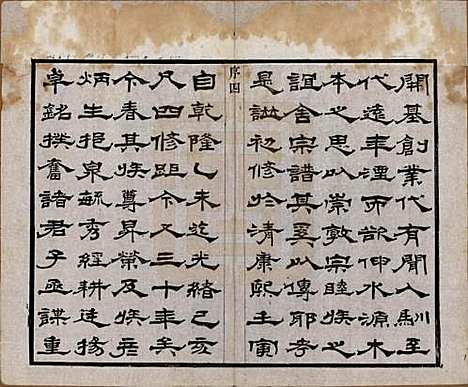 開基創業代有聞人馴至
代遠年湮而欲仰水源木
本之思以崇敦宗睦族之
誼舍宗譜其奚以傳耶考
是譜初修於清康熙壬寅
序四
自乾隆乙未迄光緒己亥
凡四修距今又三十年矣
今春其族尊昇榮及族彥
炳生挹泉毓秀經耕廷揚
卓銘撲奮諸君子亟謀重